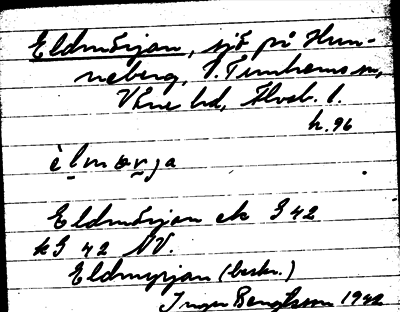 Eldmörjan, sjö på Hun-
neberg, V. Tunhems sn,
Väne hd, Älvsb. l.
k. 96
èlmœrja
Eldmörjan ek G 42
kG 42 NV.
Eldmyrjan (beskr.)
Inger Bengtsson 1942